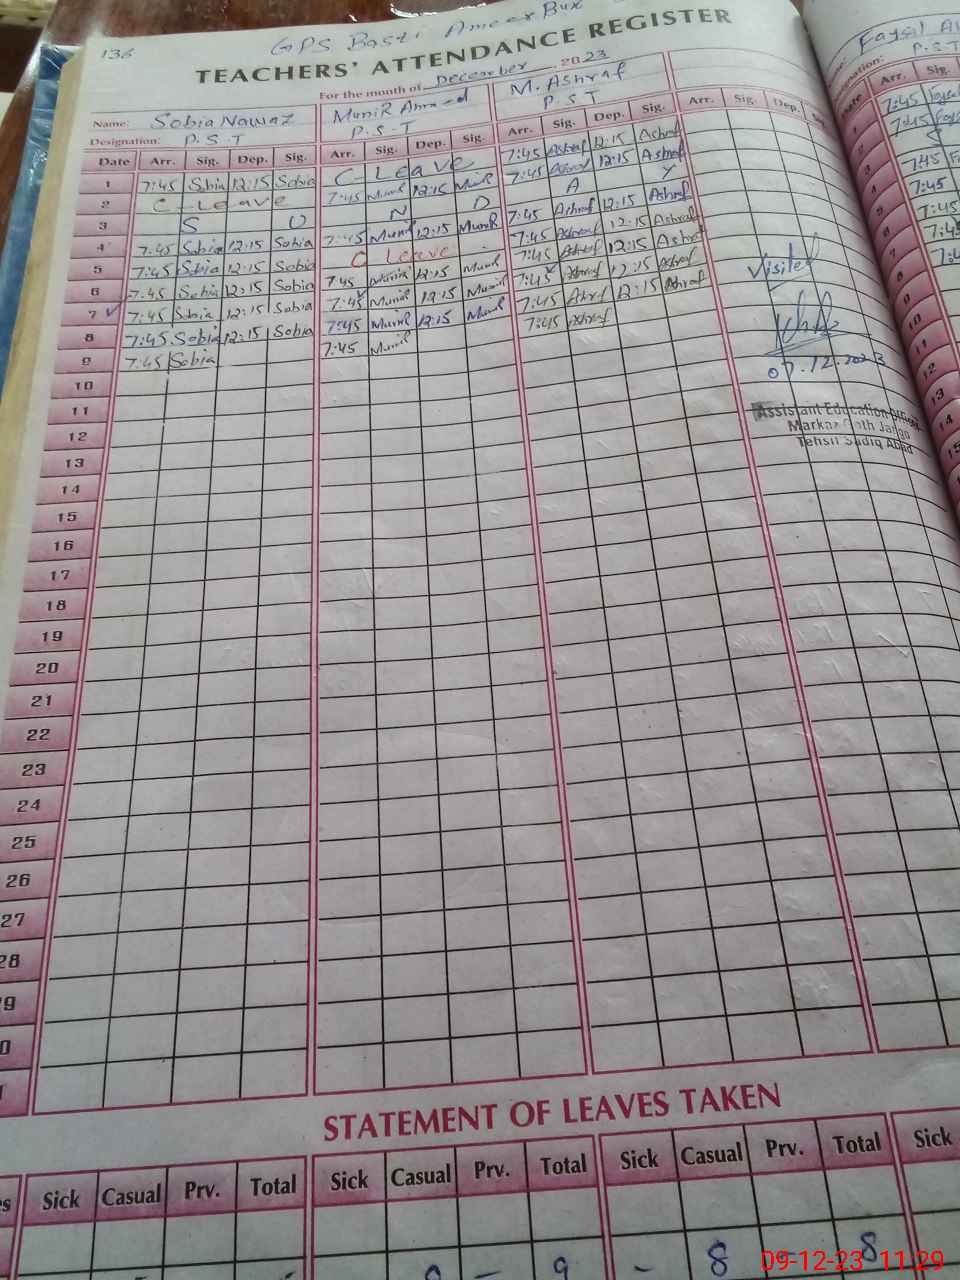 136
GPS Basti Ameer Bux
TEACHERS' ATTENDANCE REGISTER
For the month of December, 2023
Name: Sobia Nawaz Munir Ahmed M. Ashraf
Designation: P.S.T P.S.T P.S.T
Date Arr. Sig. Dep. Sig. Arr. Sig. Dep. Sig. Arr. Sig. Dep. Sig. Arr. Sig. Dep.
1 7:45 Sobia 12:15 Sobia C-Leave 7:45 Ashraf 12:15 Ashraf
2 C-Leave 7:45 Munir 12:15 Munir 7:45 Ashraf 12:15 Ashraf
3 S U N D A Y
4 7:45 Sobia 12:15 Sobia 7:45 Munir 12:15 Munir 7:45 Ashraf 12:15 Ashraf
5 7:45 Sobia 12:15 Sobia C Leave 7:45 Ashraf 12:15 Ashraf
6 7:45 Sobia 12:15 Sobia 7:45 Munir 12:15 Munir 7:45 Ashraf 12:15 Ashraf
7 7:45 Sobia 12:15 Sobia 7:45 Munir 12:15 Munir 7:45 Ashraf 12:15 Ashraf
8 7:45 Sobia 12:15 Sobia 7:45 Munir 12:15 Munir 7:45 Ashraf 12:15 Ashraf
9 7:45 Sobia 7:45 Munir 7:45 Ashraf
Visited
07.12.2023
Assistant Education Officer
Markaz Goth Jango
Tehsil Sadiq Abad
10
11
12
13
14
15
16
17
18
19
20
21
22
23
24
25
26
27
28
Faysal
P.S.T
Arr. Sig.
7:45
7:45
S
7:45
7:45
7:45
7:45
STATEMENT OF LEAVES TAKEN
Sick Casual Prv. Total Sick Casual Prv. Total Sick Casual Prv. Total Sick
9 - 9 - 8 - 8
09-12-23 11:29